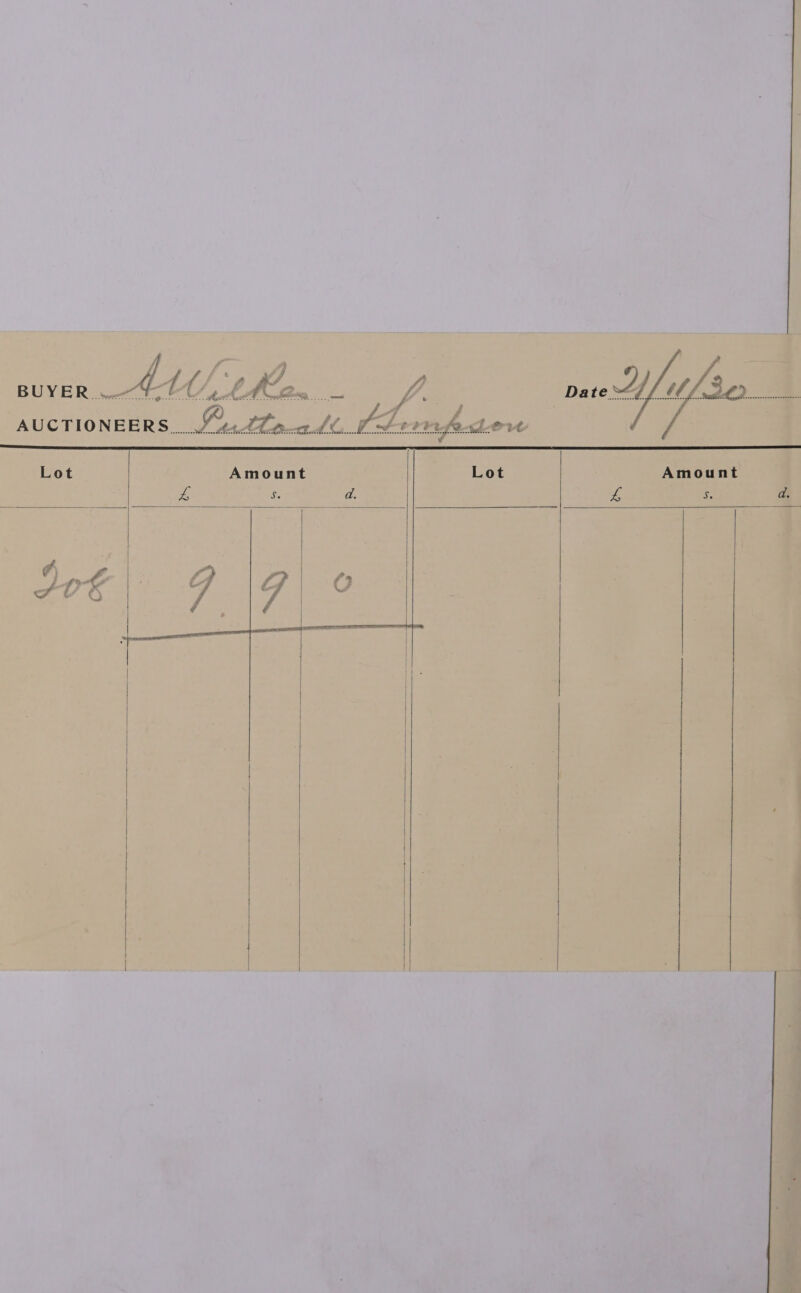 BUYER
Date 21/11/30
AUCTIONEERS Puttock & Simpson
Lot Amount Lot Amount
£ s. d. £ s. d.
9 9 0